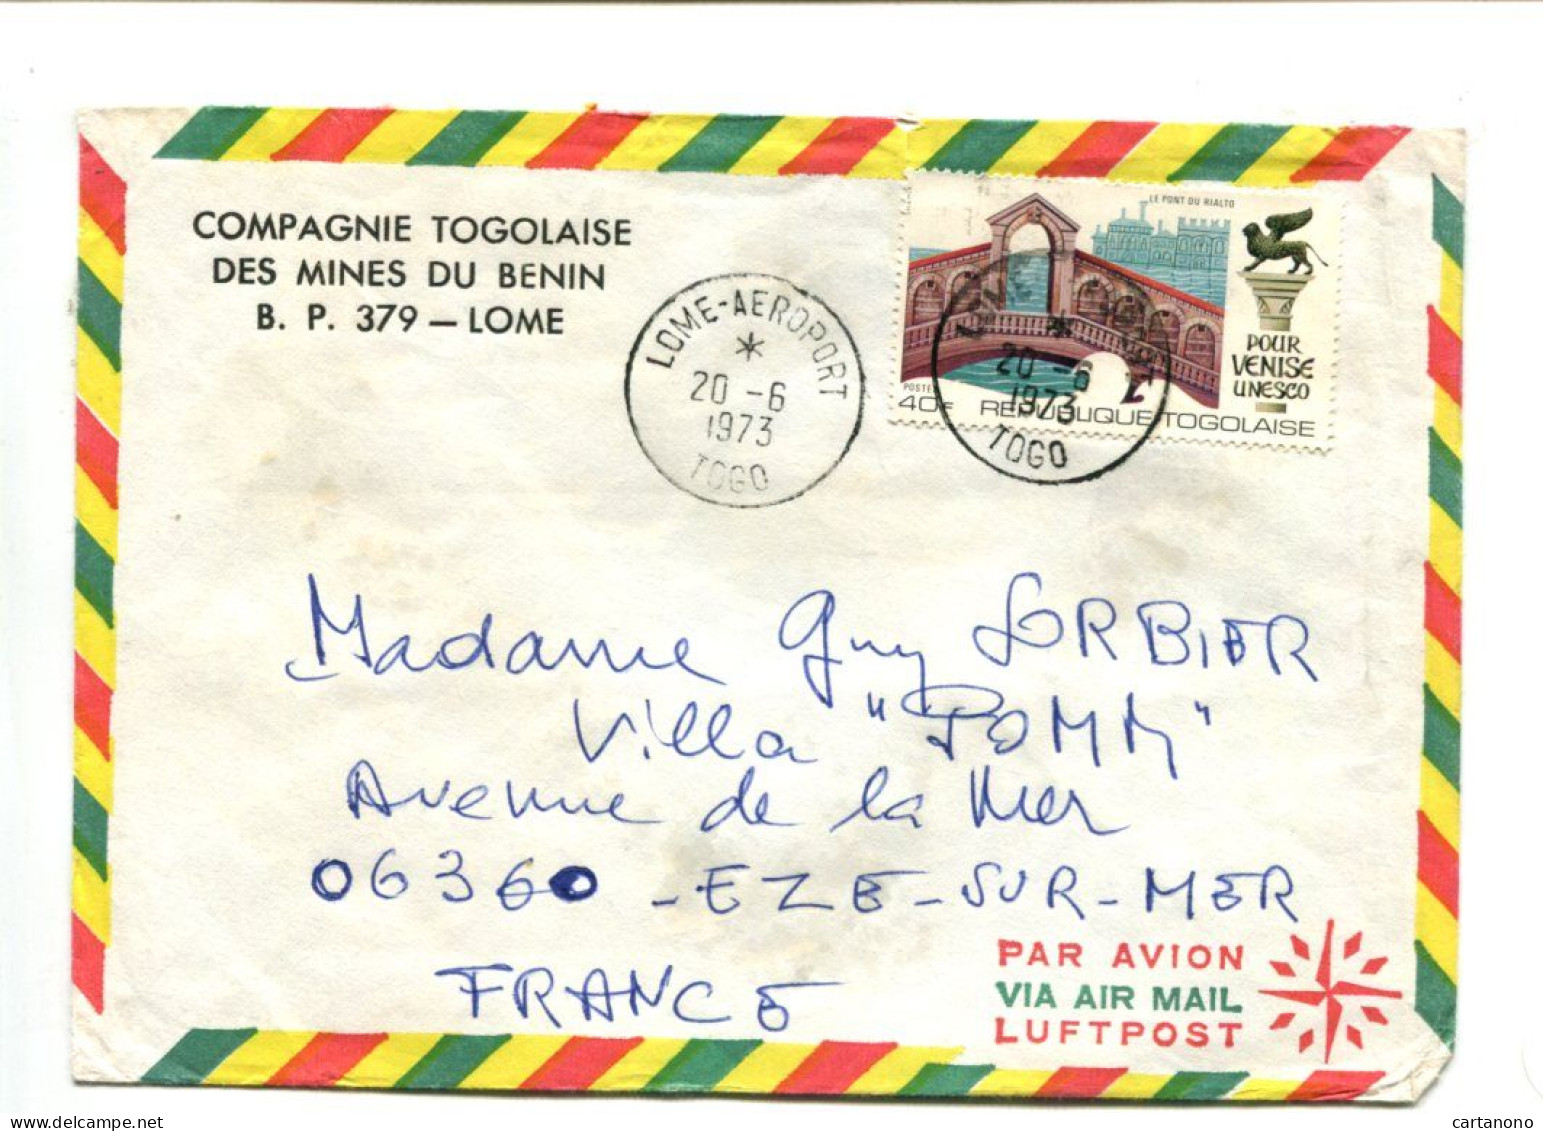 COMPAGNIE TOGOLAISE
DES MINES DU BENIN
B. P. 379 — LOME
LOME-AEROPORT
20 -6
1973
TOGO
LE PONT DU RIALTO
POUR
VENISE
UNESCO
POSTES
40F REPUBLIQUE TOGOLAISE
20 -6
1973
TOGO
Madame Guy SORBIER
Villa "POMM"
Avenue de la Mer
06360 - EZE-SUR-MER
FRANCE
PAR AVION
VIA AIR MAIL
LUFTPOST
Delcampe.net
cartanono